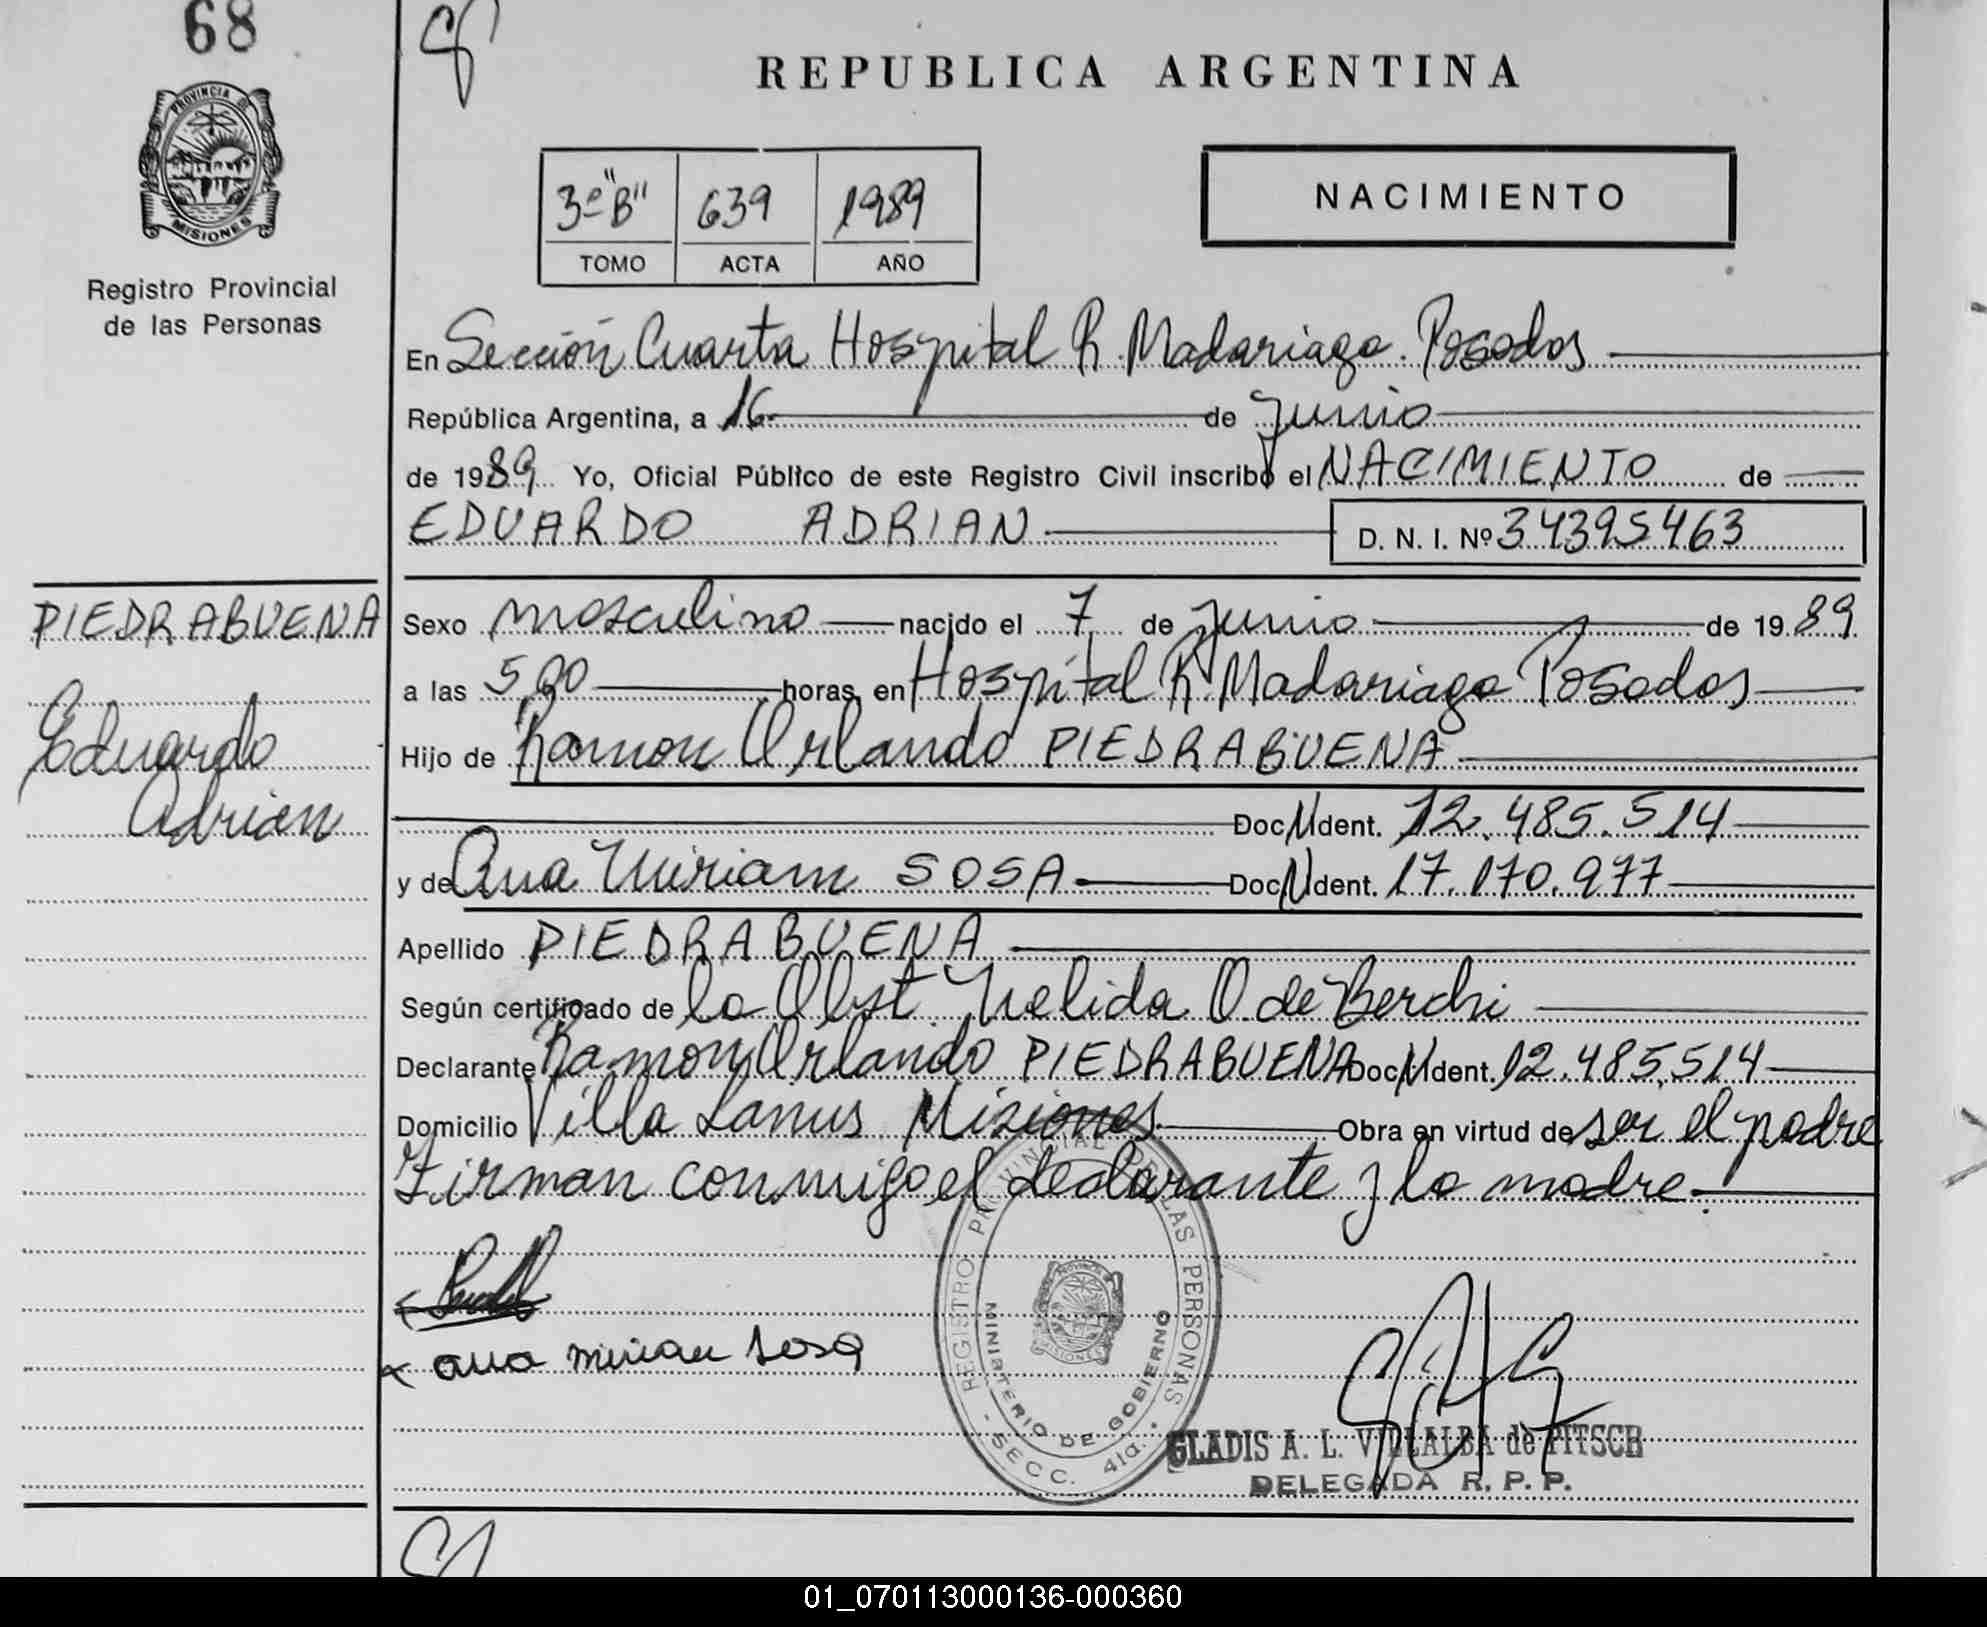 68
REPUBLICA ARGENTINA
PROVINCIA DE
MISIONES
Registro Provincial
de las Personas
3º "B" 639 1989
TOMO ACTA AÑO
NACIMIENTO
En Sección Cuarta Hospital R. Madariaga. Posadas
República Argentina, a 16 de junio
de 1989 Yo, Oficial Público de este Registro Civil inscribo el NACIMIENTO de
EDUARDO ADRIAN D. N. I. Nº 34395463
PIEDRABUENA
Eduardo
Adrian
Sexo masculino nacido el 7 de junio de 1989
a las 5,00 horas, en Hospital R. Madariaga Posadas
Hijo de Ramon Orlando PIEDRABUENA
Doc. N Ident. 12.485.514
y de Ana Miriam SOSA Doc. N Ident. 17.170.977
Apellido PIEDRABUENA
Según certificado de la Obst. Nelida O. de Berchi
Declarante Ramon Orlando PIEDRABUENA Doc. N Ident. 12.485.514
Domicilio Villa Lanus Misiones. Obra en virtud de ser el padre
Firman conmigo el declarante y la madre.
ana mirian sosa
REGISTRO PROVINCIAL DE LAS PERSONAS
MINISTERIO DE GOBIERNO
- SECC. 4ta. -
PROVINCIA
MISIONES
GLADIS A. L. VILLALBA de PITSCH
DELEGADA R. P. P.
01_070113000136-000360